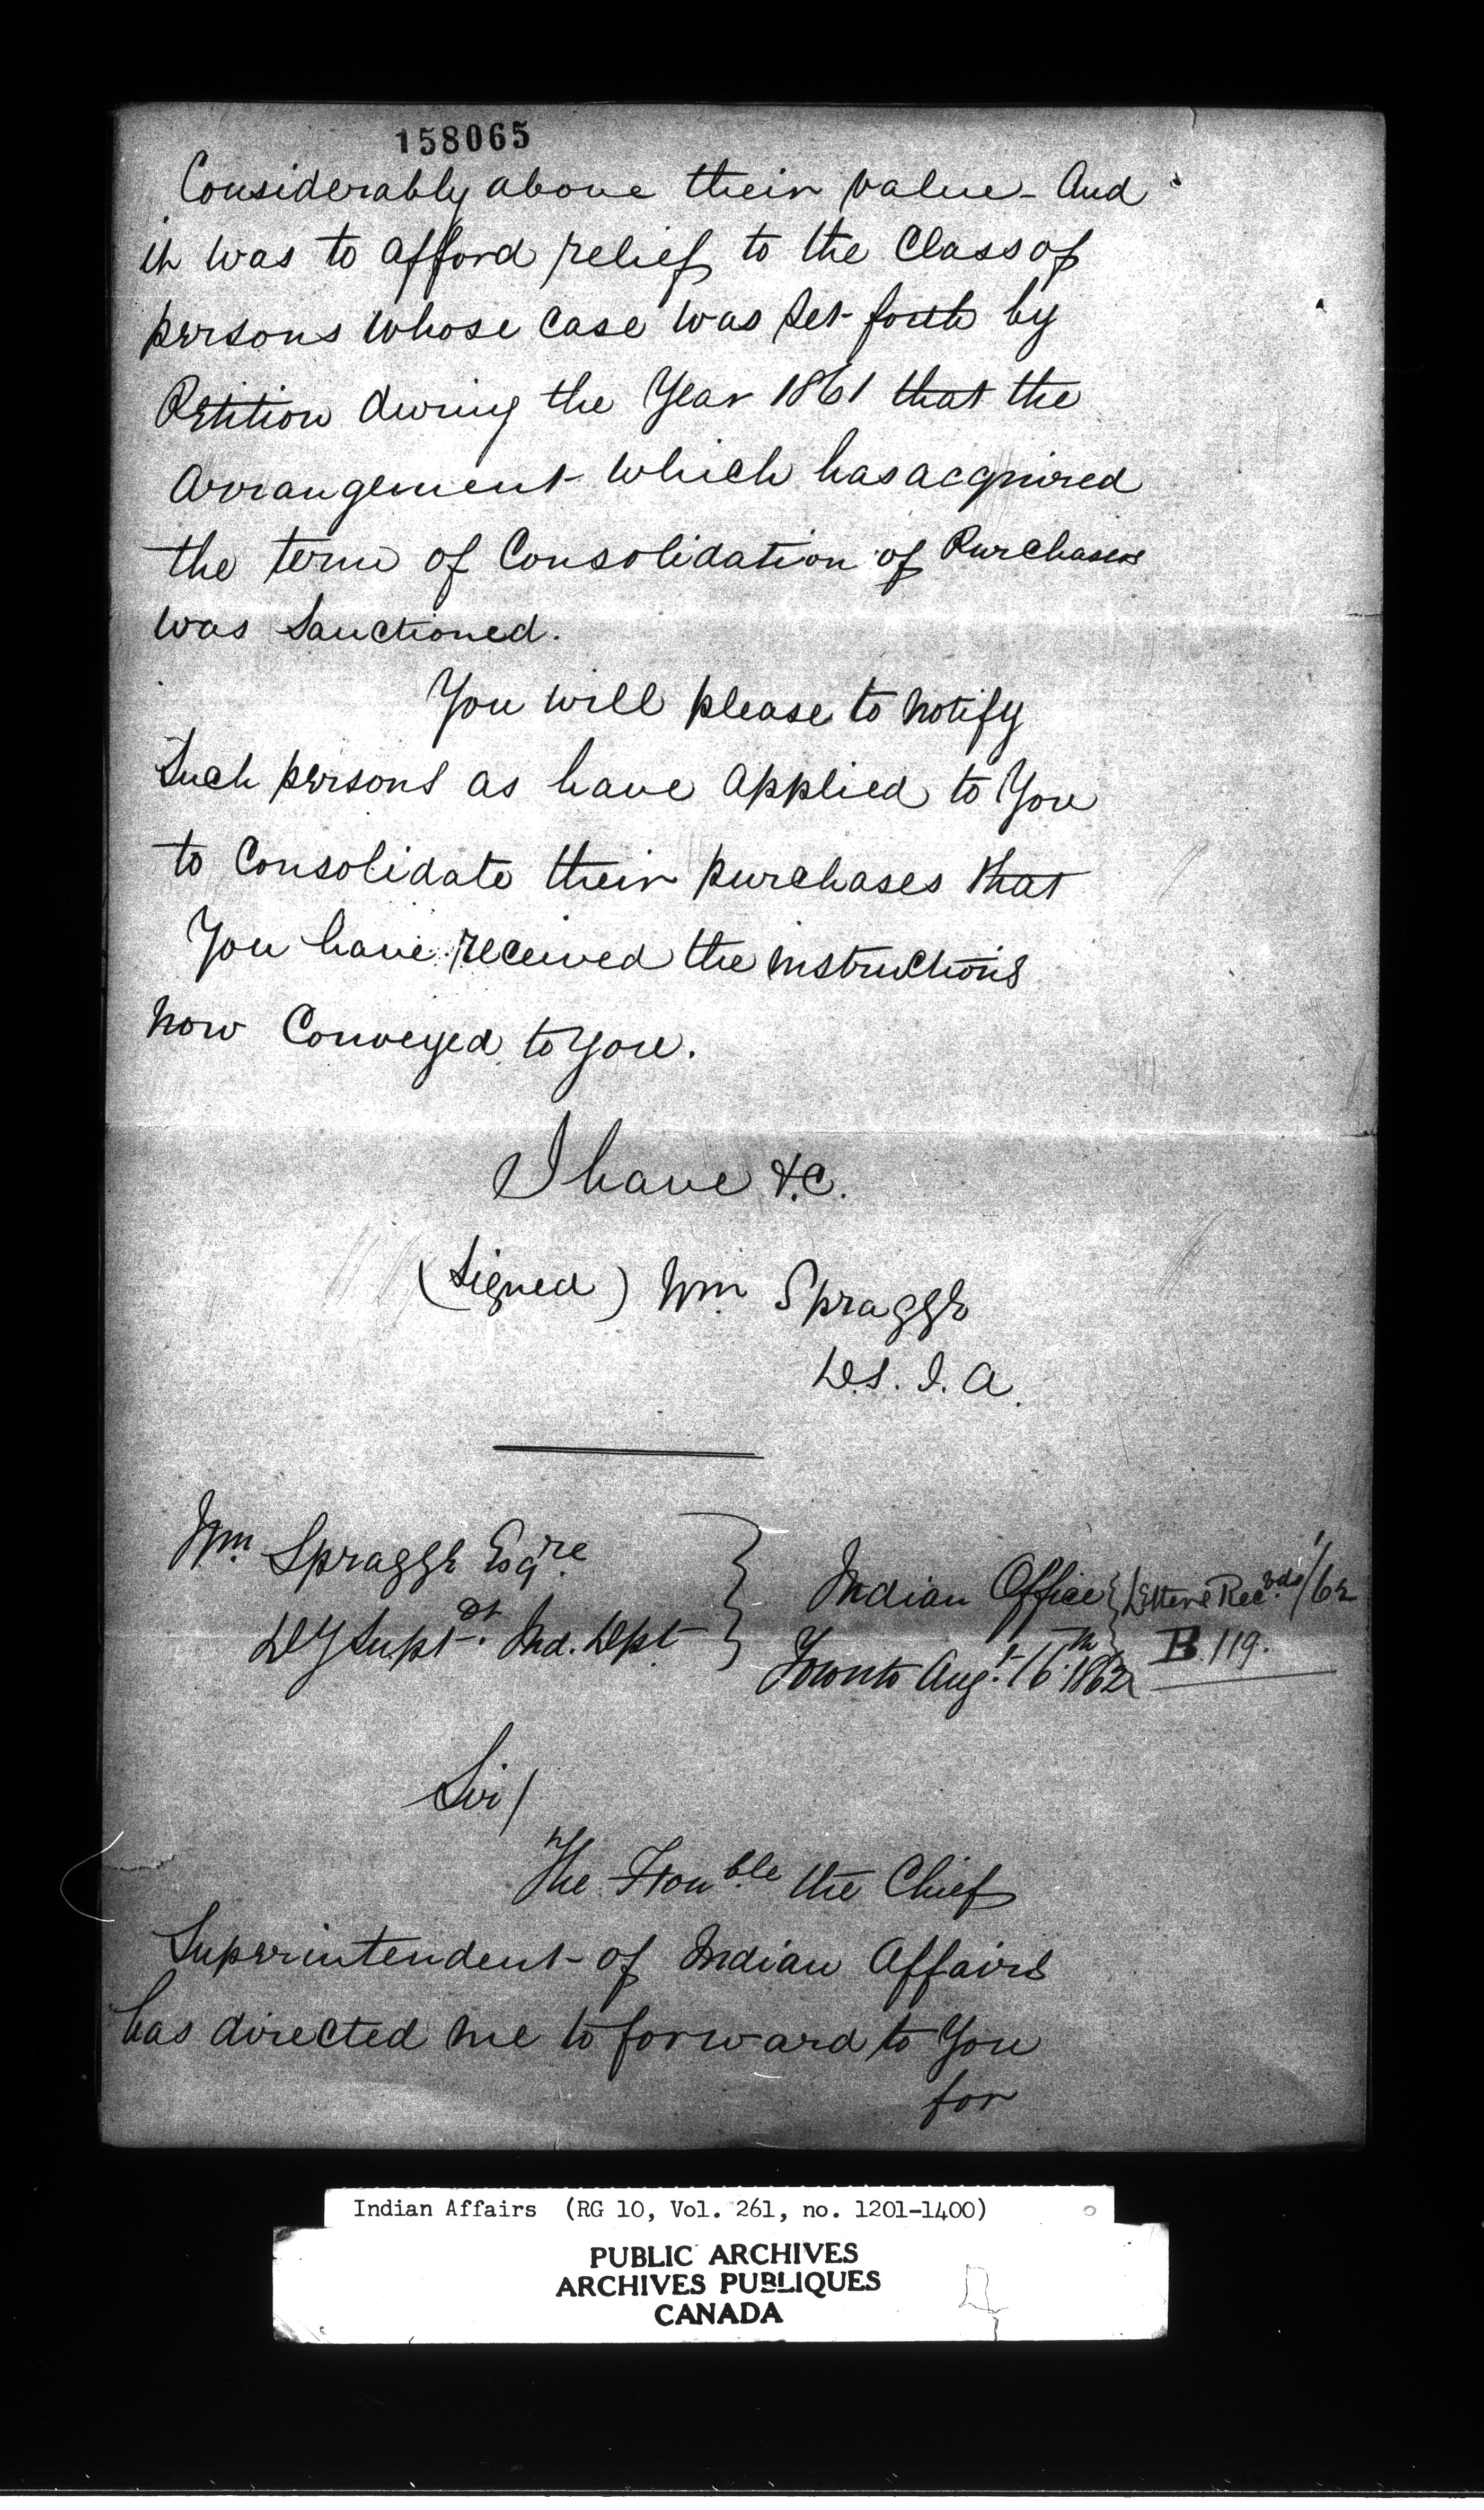 158065
Considerably above their value - And
it was to afford relief to the Class of
persons whose case was set forth by
Petition during the Year 1861 that the
Arrangement which has acquired
the term of Consolidation of Purchases
was Sanctioned.
You will please to notify
Such persons as have applied to You
to Consolidate their purchases that
You have received the instructions
now Conveyed to You.
I have &.C.
(Signed) Wm. Spragge
D.S. I. A.
Wm. Spragge Esqre.
Dy Supt.dt Ind. Dept
Indian Office
Toronto Aug.t 16th 1862
Letters Rec.vds /62
B. 119.
Sir/
The Honble the Chief
Superintendent of Indian Affairs
has directed me to forward to You
for
Indian Affairs (RG 10, Vol. 261, no. 1201-1400)
PUBLIC ARCHIVES
ARCHIVES PUBLIQUES
CANADA